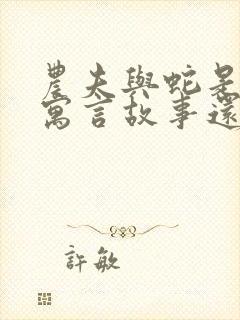 農夫與蛇是
寓言故事還
許敏